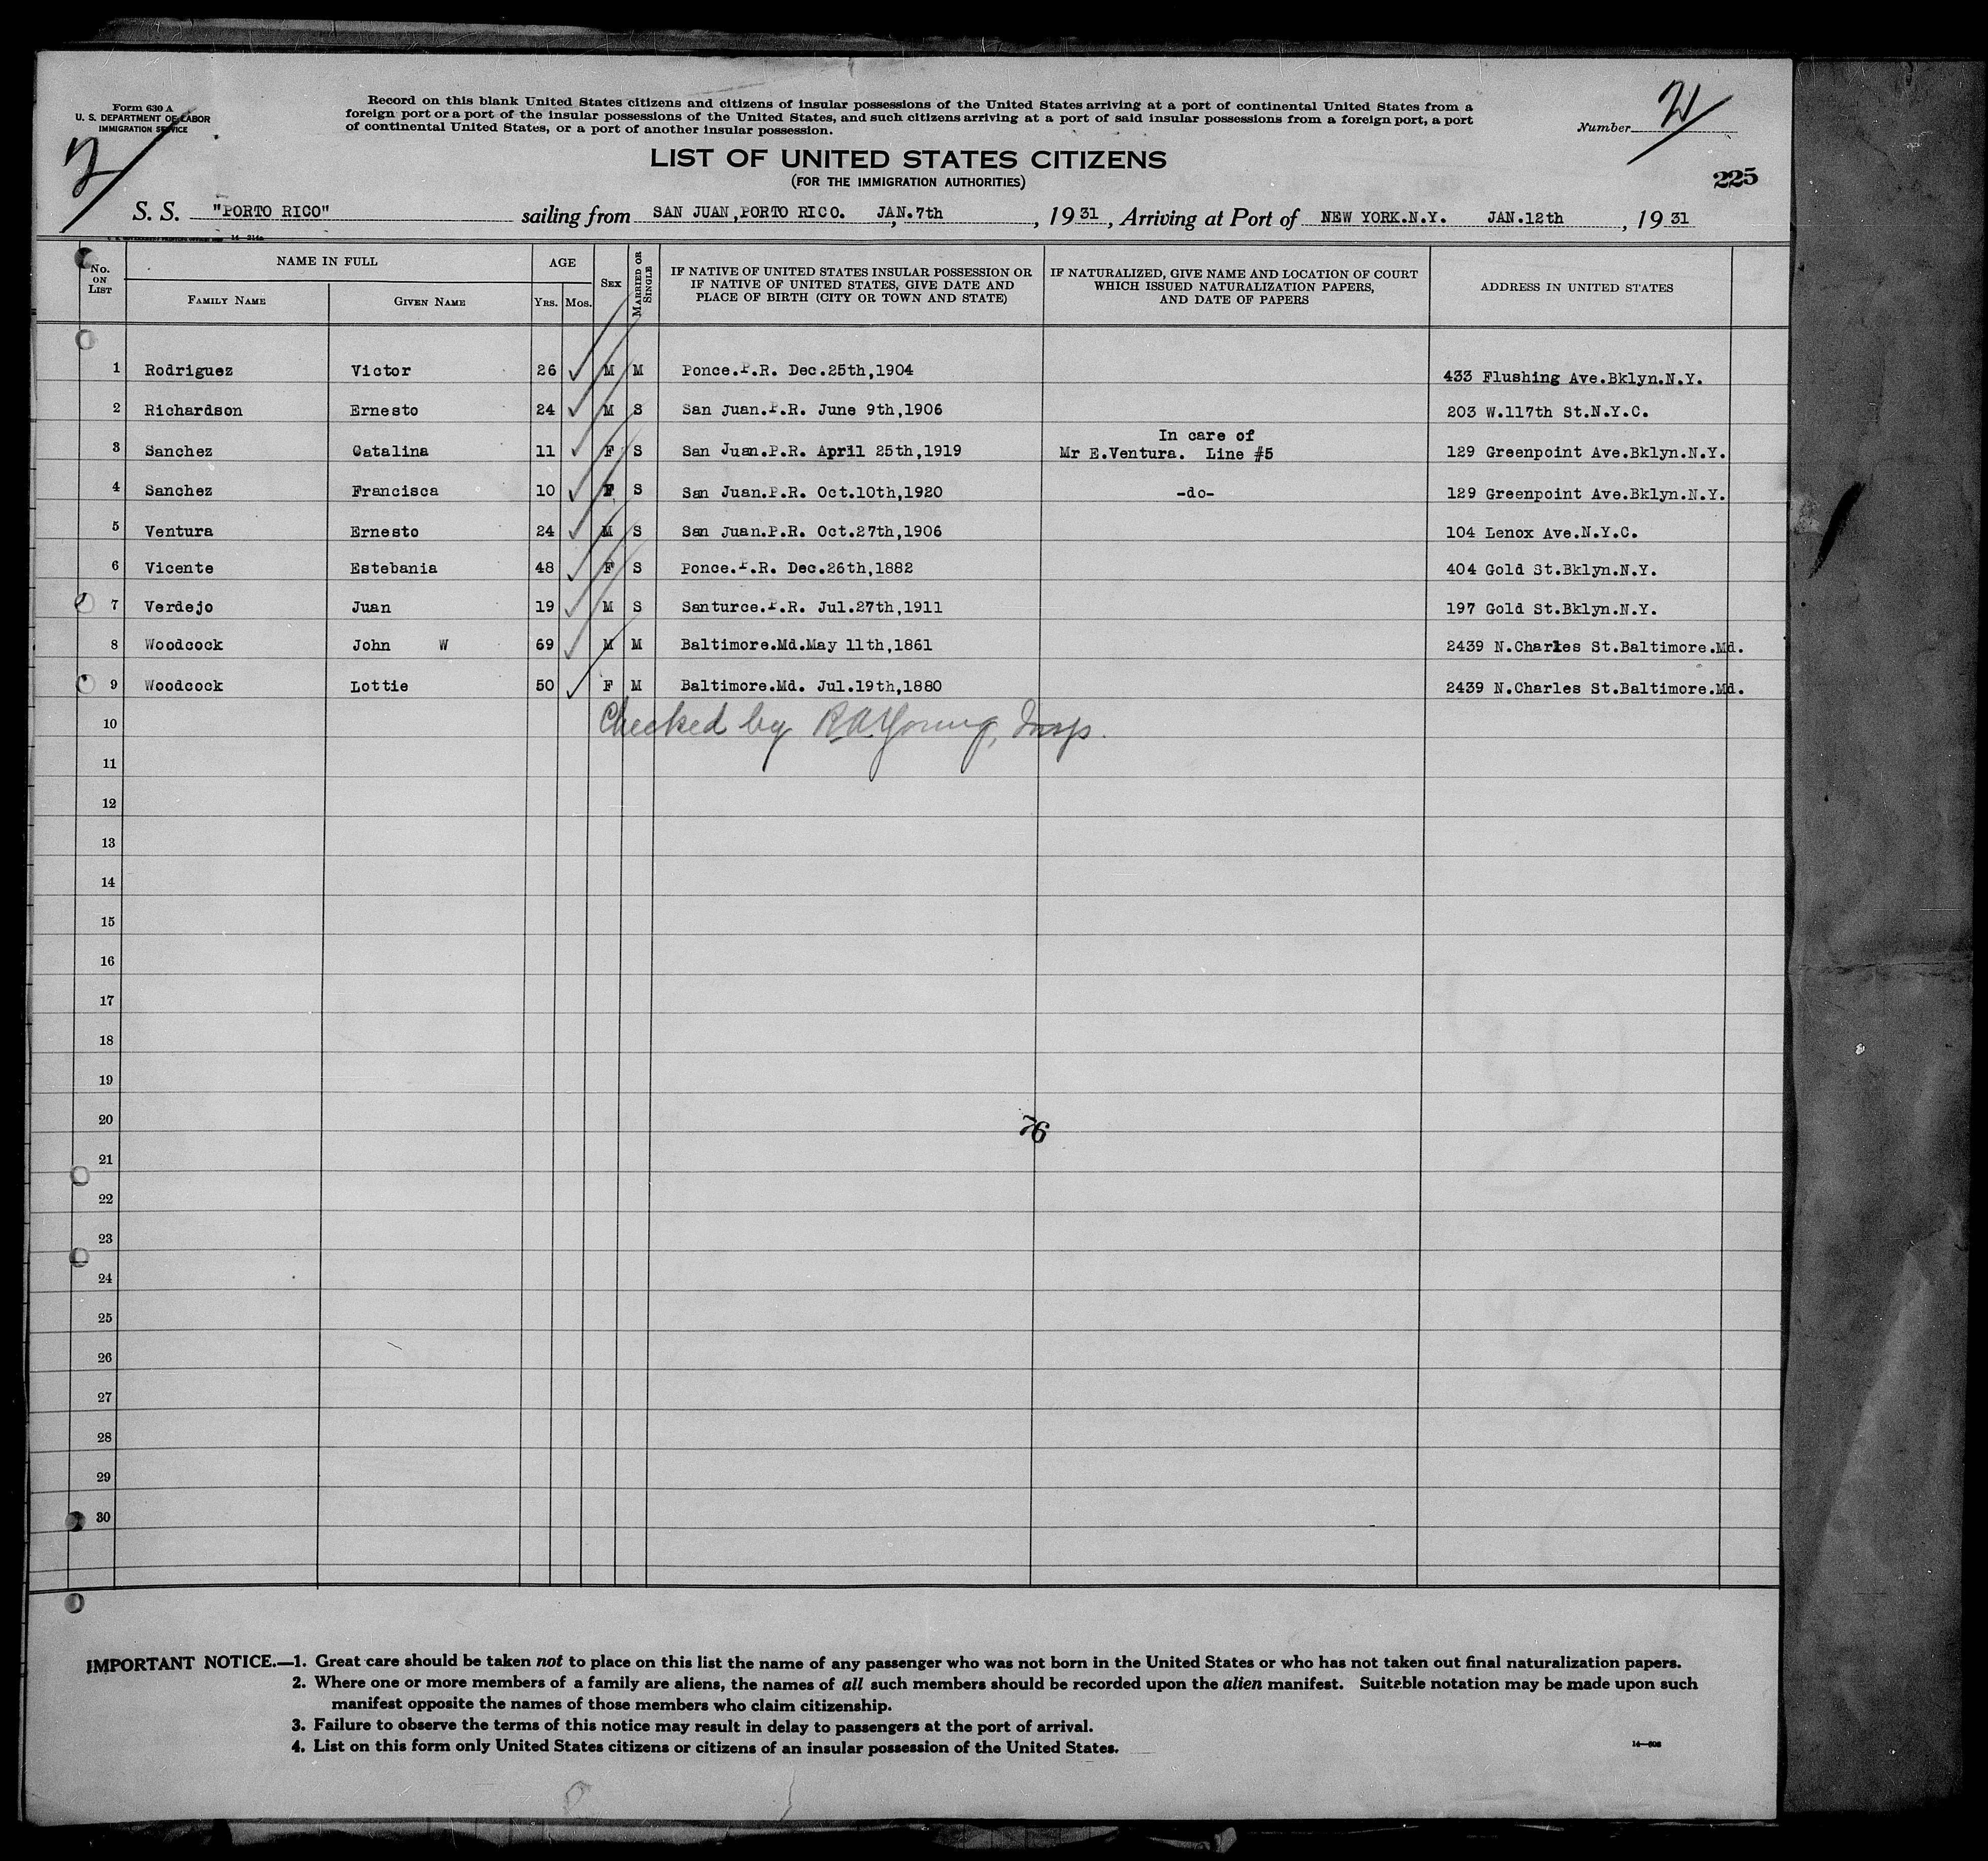 Form 630 A
U. S. DEPARTMENT OF LABOR
IMMIGRATION SERVICE
Record on this blank United States citizens and citizens of insular possessions of the United States arriving at a port of continental United States from a
foreign port or a port of the insular possessions of the United States, and such citizens arriving at a port of said insular possessions from a foreign port, a port
of continental United States, or a port of another insular possession.
Number
225
LIST OF UNITED STATES CITIZENS
(FOR THE IMMIGRATION AUTHORITIES)
S. S. "PORTO RICO" sailing from SAN JUAN,PORTO RICO. JAN.7th, 1931, Arriving at Port of NEW YORK.N.Y. JAN.12th, 1931
No. ON LIST
NAME IN FULL
FAMILY NAME GIVEN NAME
AGE
YRS. MOS.
SEX
MARRIED OR SINGLE
IF NATIVE OF UNITED STATES INSULAR POSSESSION OR
IF NATIVE OF UNITED STATES, GIVE DATE AND
PLACE OF BIRTH (CITY OR TOWN AND STATE)
IF NATURALIZED, GIVE NAME AND LOCATION OF COURT
WHICH ISSUED NATURALIZATION PAPERS,
AND DATE OF PAPERS
ADDRESS IN UNITED STATES
1 Rodriguez Victor 26 M M Ponce.P.R. Dec.25th,1904 433 Flushing Ave.Bklyn.N.Y.
2 Richardson Ernesto 24 M S San Juan.P.R. June 9th,1906 203 W.117th St.N.Y.C.
In care of
3 Sanchez Catalina 11 F S San Juan.P.R. April 25th,1919 Mr E.Ventura. Line #5 129 Greenpoint Ave.Bklyn.N.Y.
4 Sanchez Francisca 10 F S San Juan.P.R. Oct.10th,1920 -do- 129 Greenpoint Ave.Bklyn.N.Y.
5 Ventura Ernesto 24 M S San Juan.P.R. Oct.27th,1906 104 Lenox Ave.N.Y.C.
6 Vicente Estebania 48 F S Ponce.P.R. Dec.26th,1882 404 Gold St.Bklyn.N.Y.
7 Verdejo Juan 19 M S Santurce.P.R. Jul.27th,1911 197 Gold St.Bklyn.N.Y.
8 Woodcock John W 69 M M Baltimore.Md.May 11th,1861 2439 N.Charles St.Baltimore.Md.
9 Woodcock Lottie 50 F M Baltimore.Md. Jul.19th,1880 2439 N.Charles St.Baltimore.Md.
Checked by R A Young, Insp.
10
11
12
13
14
15
16
17
18
19
20
76
21
22
23
24
25
26
27
28
29
30
IMPORTANT NOTICE.—1. Great care should be taken not to place on this list the name of any passenger who was not born in the United States or who has not taken out final naturalization papers.
2. Where one or more members of a family are aliens, the names of all such members should be recorded upon the alien manifest. Suitable notation may be made upon such
manifest opposite the names of those members who claim citizenship.
3. Failure to observe the terms of this notice may result in delay to passengers at the port of arrival.
4. List on this form only United States citizens or citizens of an insular possession of the United States.